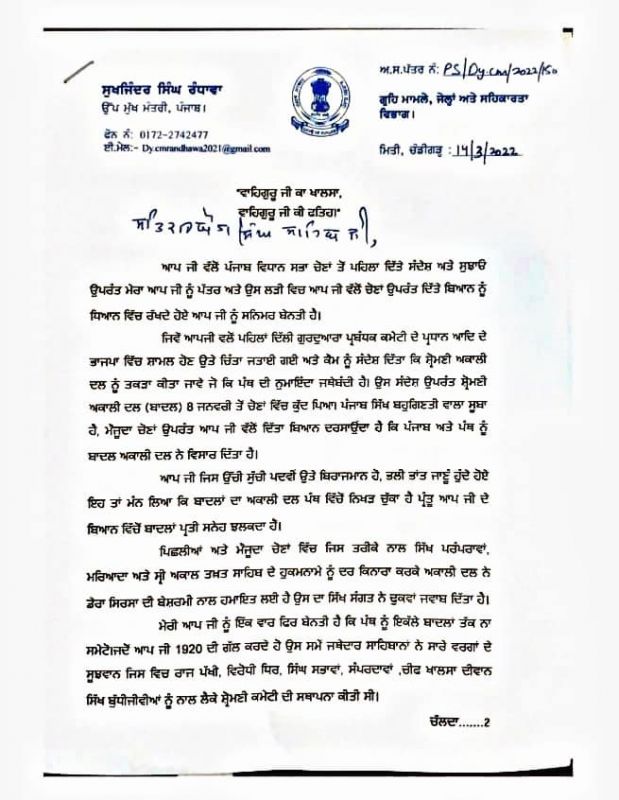 ਅ.ਸ.ਪੱਤਰ ਨੰ: PS/Dy.cm/2022/150
ਸੁਖਜਿੰਦਰ ਸਿੰਘ ਰੰਧਾਵਾ
ਉੱਪ ਮੁੱਖ ਮੰਤਰੀ, ਪੰਜਾਬ।
ਗ੍ਰਹਿ ਮਾਮਲੇ, ਜੇਲ੍ਹਾਂ ਅਤੇ ਸਹਿਕਾਰਤਾ
ਵਿਭਾਗ।
ਫੋਨ ਨੰ: 0172-2742477
ਈ.ਮੇਲ:- Dy.cmrandhawa2021@gmail.com
ਮਿਤੀ, ਚੰਡੀਗੜ੍ਹ : 14/3/2022
"ਵਾਹਿਗੁਰੂ ਜੀ ਕਾ ਖਾਲਸਾ,
ਵਾਹਿਗੁਰੂ ਜੀ ਕੀ ਫਤਿਹ।"
ਸਤਿਕਾਰਯੋਗ ਸਿੰਘ ਸਾਹਿਬ ਜੀ,
ਆਪ ਜੀ ਵੱਲੋਂ ਪੰਜਾਬ ਵਿਧਾਨ ਸਭਾ ਚੋਣਾਂ ਤੋਂ ਪਹਿਲਾ ਦਿੱਤੇ ਸੰਦੇਸ਼ ਅਤੇ ਸੁਝਾਓ
ਉਪਰੰਤ ਮੇਰਾ ਆਪ ਜੀ ਨੂੰ ਪੱਤਰ ਅਤੇ ਉਸ ਲੜੀ ਵਿਚ ਆਪ ਜੀ ਵੱਲੋਂ ਚੋਣਾਂ ਉਪਰੰਤ ਦਿੱਤੇ ਬਿਆਨ ਨੂੰ
ਧਿਆਨ ਵਿੱਚ ਰੱਖਦੇ ਹੋਏ ਆਪ ਜੀ ਨੂੰ ਸਨਿਮਰ ਬੇਨਤੀ ਹੈ।
ਜਿਵੇਂ ਆਪਜੀ ਵਲੋਂ ਪਹਿਲਾਂ ਦਿੱਲੀ ਗੁਰਦੁਆਰਾ ਪ੍ਰਬੰਧਕ ਕਮੇਟੀ ਦੇ ਪ੍ਰਧਾਨ ਆਦਿ ਦੇ
ਭਾਜਪਾ ਵਿੱਚ ਸ਼ਾਮਲ ਹੋਣ ਉਤੇ ਚਿੰਤਾ ਜਤਾਈ ਗਈ ਅਤੇ ਕੌਮ ਨੂੰ ਸੰਦੇਸ਼ ਦਿੱਤਾ ਕਿ ਸ਼੍ਰੋਮਣੀ ਅਕਾਲੀ
ਦਲ ਨੂੰ ਤਕੜਾ ਕੀਤਾ ਜਾਵੇ ਜੋ ਕਿ ਪੰਥ ਦੀ ਨੁਮਾਇੰਦਾ ਜਥੇਬੰਦੀ ਹੈ। ਉਸ ਸੰਦੇਸ਼ ਉਪਰੰਤ ਸ਼੍ਰੋਮਣੀ
ਅਕਾਲੀ ਦਲ (ਬਾਦਲ) 8 ਜਨਵਰੀ ਤੋਂ ਚੋਣਾਂ ਵਿੱਚ ਕੁੱਦ ਪਿਆ। ਪੰਜਾਬ ਸਿੱਖ ਬਹੁਗਿਣਤੀ ਵਾਲਾ ਸੂਬਾ
ਹੈ, ਮੌਜੂਦਾ ਚੋਣਾਂ ਉਪਰੰਤ ਆਪ ਜੀ ਵੱਲੋਂ ਦਿੱਤਾ ਬਿਆਨ ਦਰਸਾਉਂਦਾ ਹੈ ਕਿ ਪੰਜਾਬ ਅਤੇ ਪੰਥ ਨੂੰ
ਬਾਦਲ ਅਕਾਲੀ ਦਲ ਨੇ ਵਿਸਾਰ ਦਿੱਤਾ ਹੈ।
ਆਪ ਜੀ ਜਿਸ ਉੱਚੀ ਸੁੱਚੀ ਪਦਵੀਂ ਉਤੇ ਬਿਰਾਜਮਾਨ ਹੋ, ਭਲੀ ਭਾਂਤ ਜਾਣੂੰ ਹੁੰਦੇ ਹੋਏ
ਇਹ ਤਾਂ ਮੰਨ ਲਿਆ ਕਿ ਬਾਦਲਾਂ ਦਾ ਅਕਾਲੀ ਦਲ ਪੰਥ ਵਿੱਚੋਂ ਨਿਖੜ ਚੁੱਕਾ ਹੈ ਪ੍ਰੰਤੂ ਆਪ ਜੀ ਦੇ
ਬਿਆਨ ਵਿੱਚੋਂ ਬਾਦਲਾਂ ਪ੍ਰਤੀ ਸਨੇਹ ਝਲਕਦਾ ਹੈ।
ਪਿਛਲੀਆਂ ਅਤੇ ਮੌਜੂਦਾ ਚੋਣਾਂ ਵਿੱਚ ਜਿਸ ਤਰੀਕੇ ਨਾਲ ਸਿੱਖ ਪਰੰਪਰਾਵਾਂ,
ਮਰਿਆਦਾ ਅਤੇ ਸ੍ਰੀ ਅਕਾਲ ਤਖ਼ਤ ਸਾਹਿਬ ਦੇ ਹੁਕਮਨਾਮੇ ਨੂੰ ਦਰ ਕਿਨਾਰਾ ਕਰਕੇ ਅਕਾਲੀ ਦਲ ਨੇ
ਡੇਰਾ ਸਿਰਸਾ ਦੀ ਬੇਸ਼ਰਮੀ ਨਾਲ ਹਮਾਇਤ ਲਈ ਹੈ ਉਸ ਦਾ ਸਿੱਖ ਸੰਗਤ ਨੇ ਢੁਕਵਾਂ ਜਵਾਬ ਦਿੱਤਾ ਹੈ।
ਮੇਰੀ ਆਪ ਜੀ ਨੂੰ ਇੱਕ ਵਾਰ ਫਿਰ ਬੇਨਤੀ ਹੈ ਕਿ ਪੰਥ ਨੂੰ ਇਕੱਲੇ ਬਾਦਲਾਂ ਤੱਕ ਨਾ
ਸਮੇਟੋ।ਜਦੋਂ ਆਪ ਜੀ 1920 ਦੀ ਗੱਲ ਕਰਦੇ ਹੋ ਉਸ ਸਮੇਂ ਜਥੇਦਾਰ ਸਾਹਿਬਾਨਾਂ ਨੇ ਸਾਰੇ ਵਰਗਾਂ ਦੇ
ਸੂਝਵਾਨ ਜਿਸ ਵਿਚ ਰਾਜ ਪੱਖੀ, ਵਿਰੋਧੀ ਧਿਰ, ਸਿੰਘ ਸਭਾਵਾਂ, ਸੰਪਰਦਾਵਾਂ ,ਚੀਫ ਖਾਲਸਾ ਦੀਵਾਨ
ਸਿੱਖ ਬੁੱਧੀਜੀਵੀਆਂ ਨੂੰ ਨਾਲ ਲੈਕੇ ਸ਼੍ਰੋਮਣੀ ਕਮੇਟੀ ਦੀ ਸਥਾਪਨਾ ਕੀਤੀ ਸੀ।
ਚੱਲਦਾ.......2